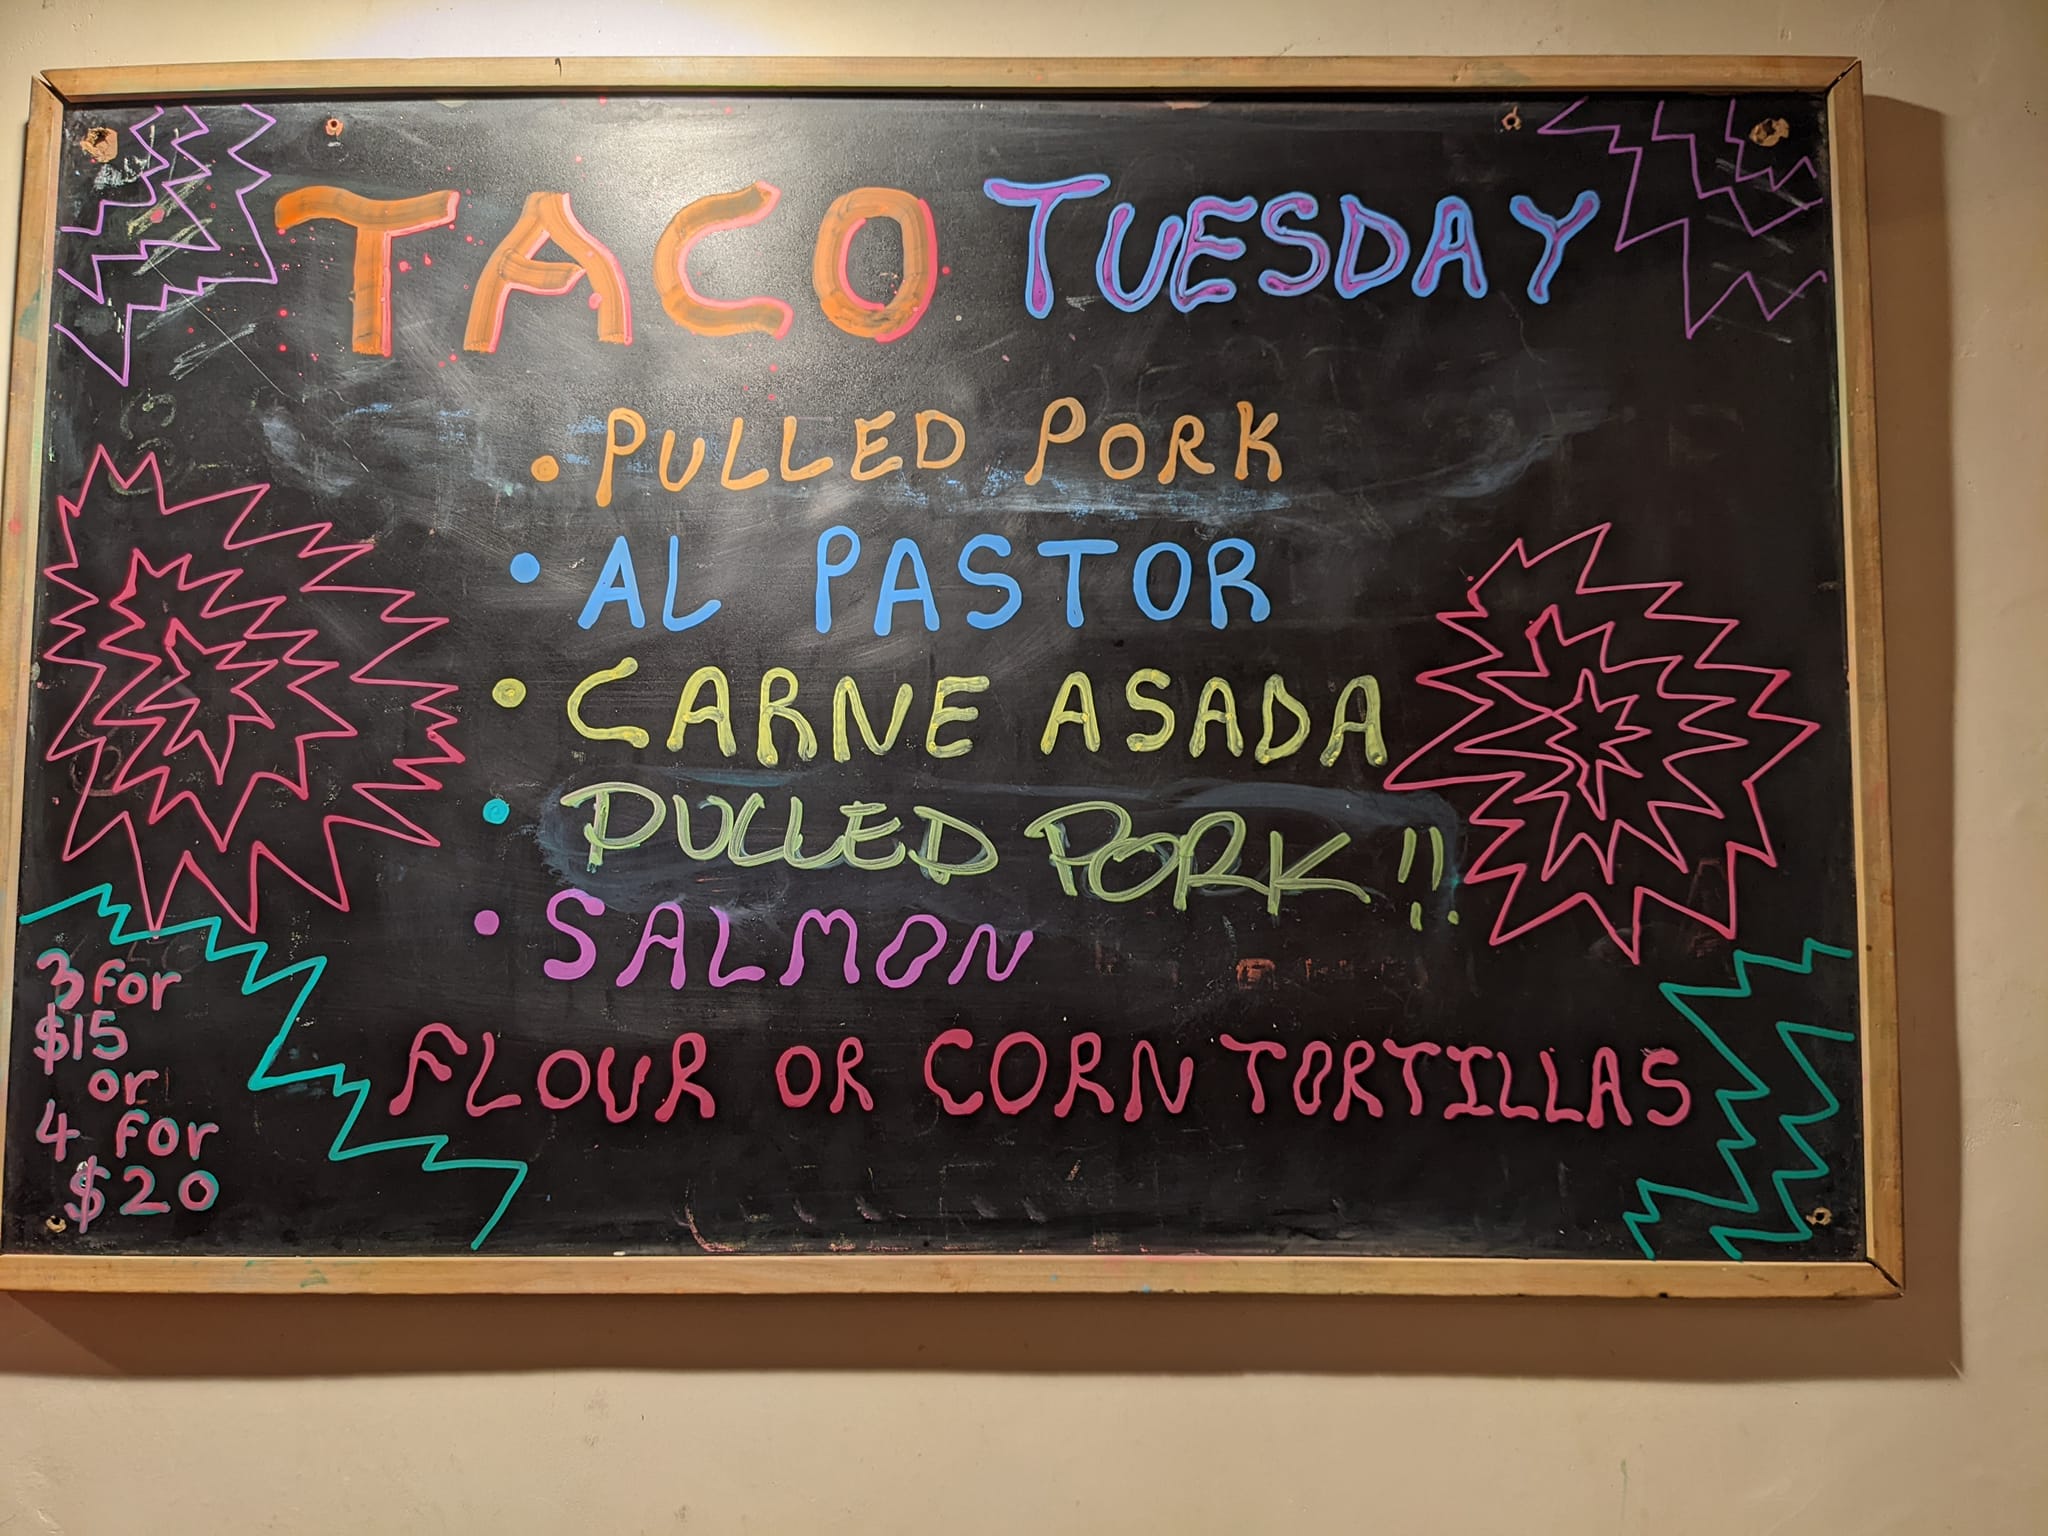 TACO TUESDAY
• PULLED PORK
• AL PASTOR
• CARNE ASADA
• PULLED PORK!!
• SALMON
FLOUR OR CORN TORTILLAS
3 for
$15
or
4 for
$20